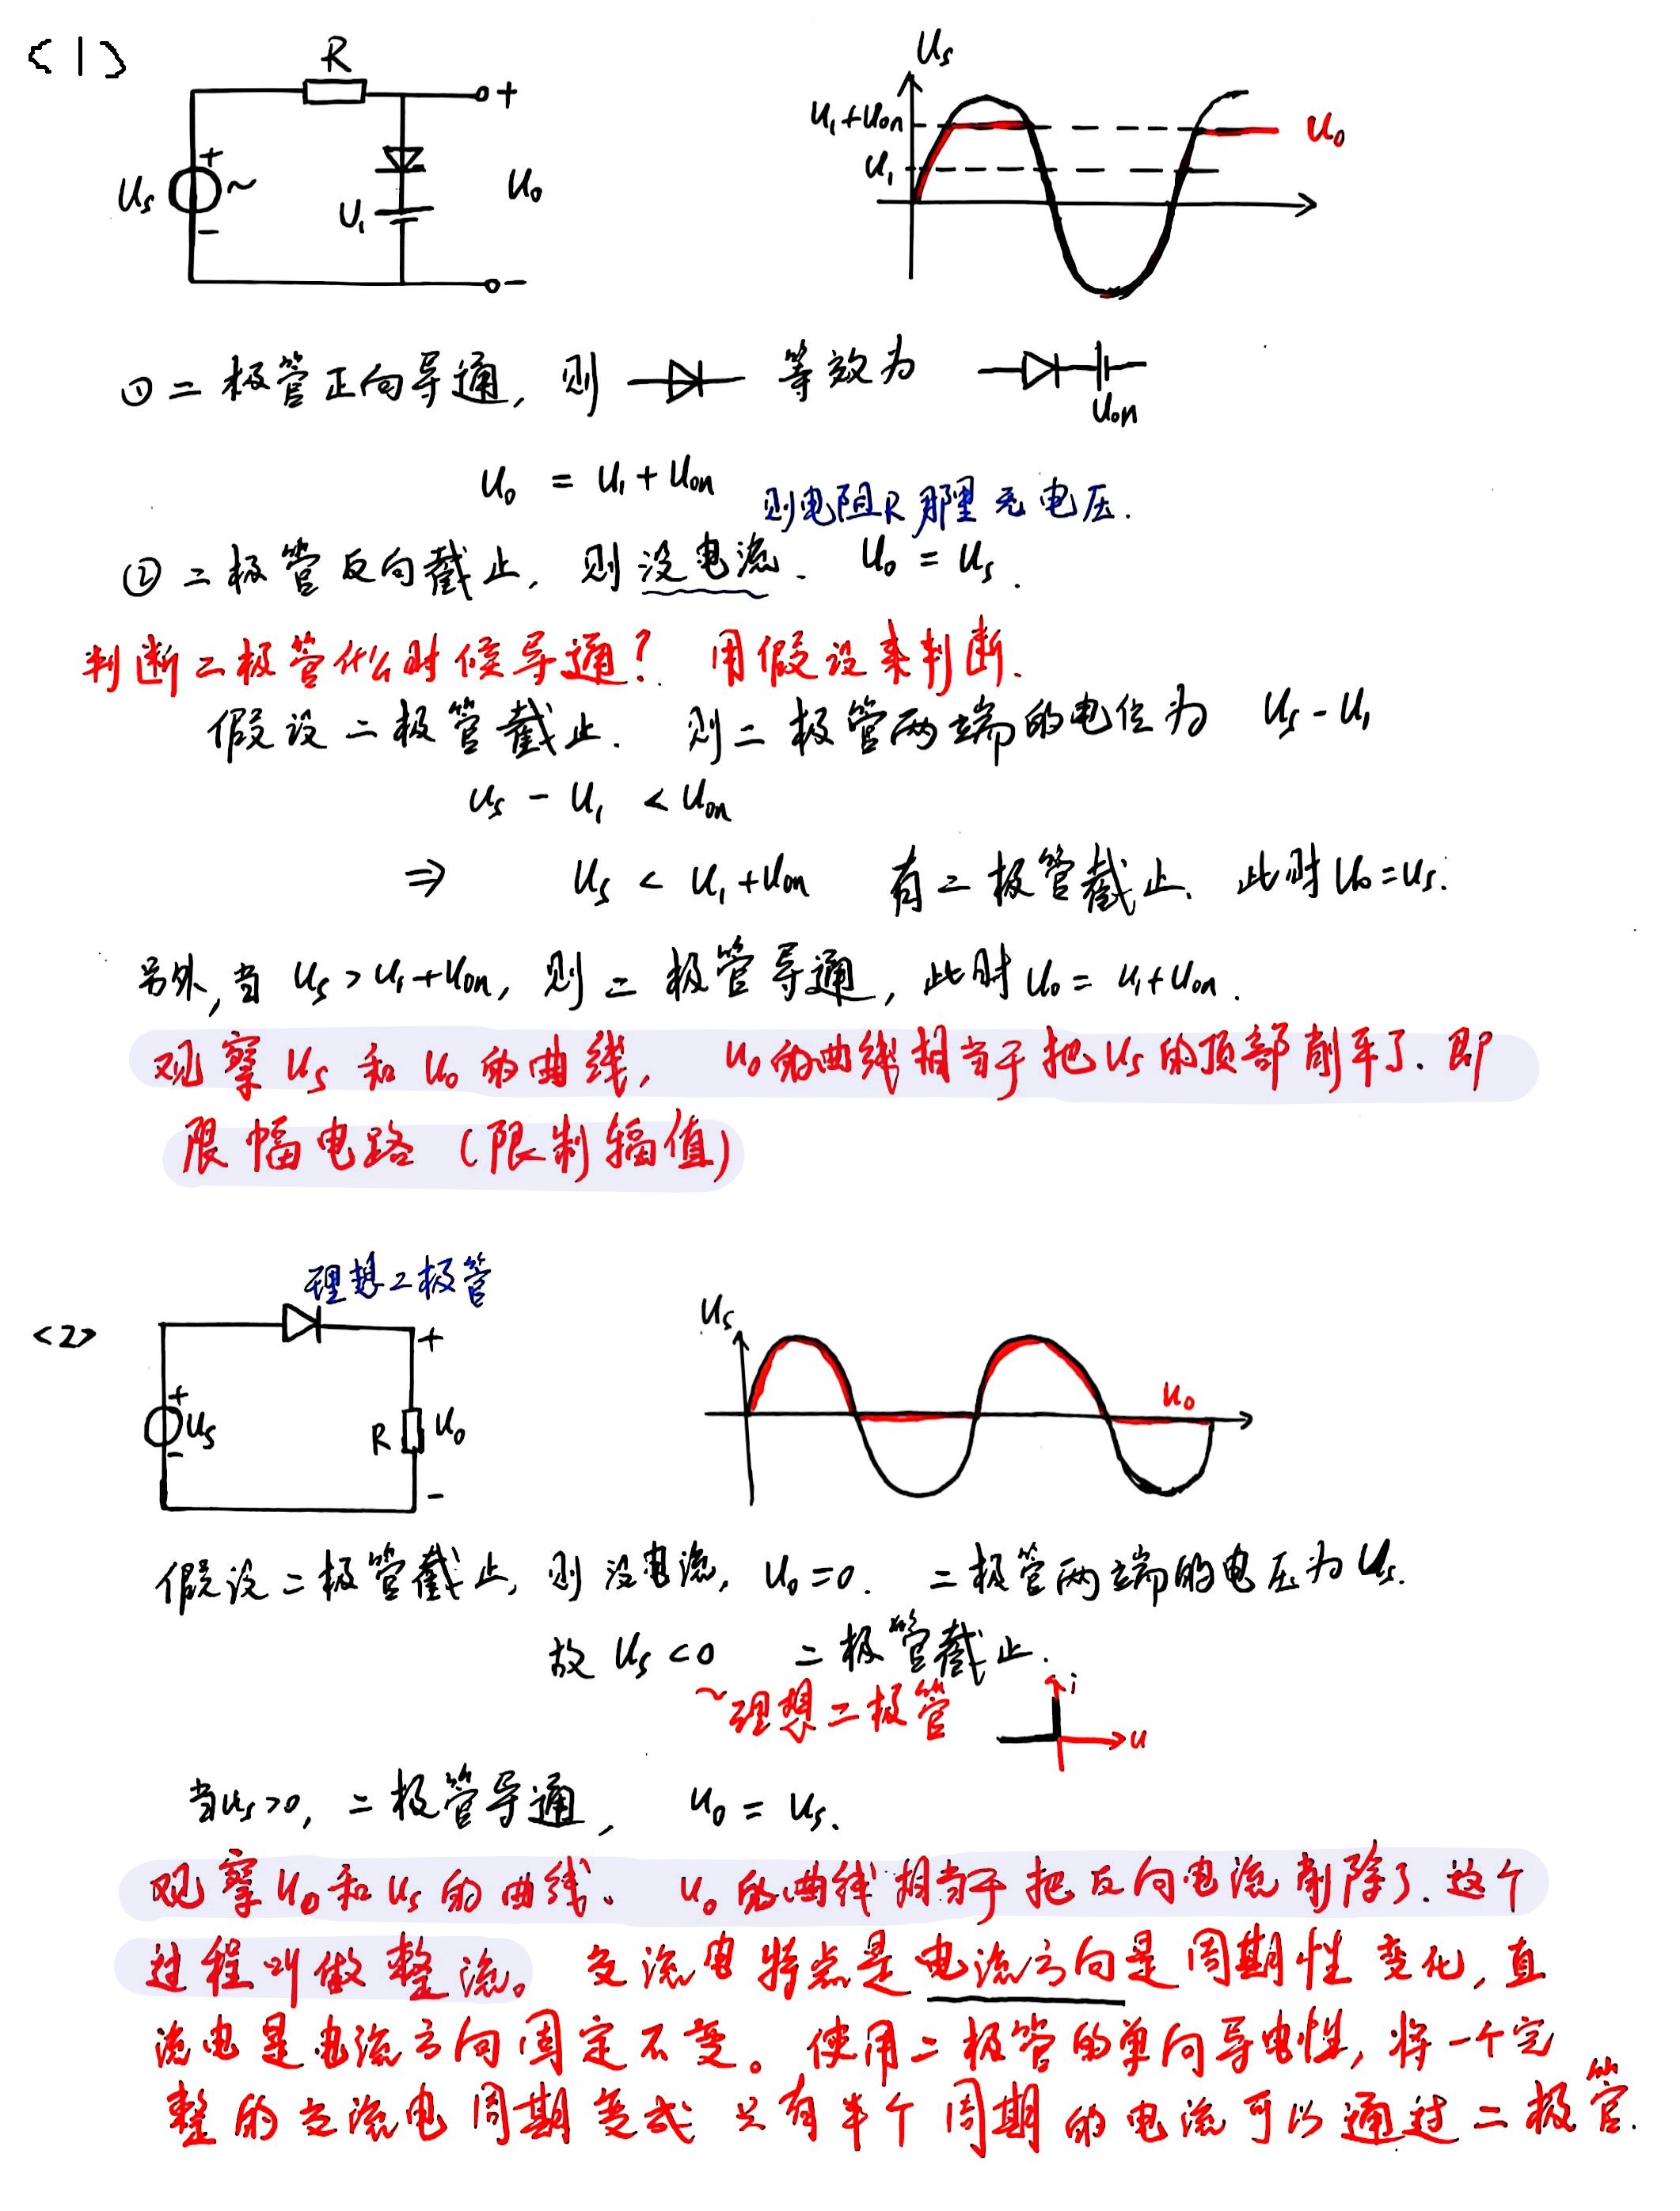 <1>
R
+
Us
+
~
-
U₁
U₀
-
Us
U₁+Uon
U₁
U₀
①二极管正向导通,则 等效为
Uon
U₀ = U₁ + Uon
则电阻R那里无电压.
②二极管反向截止,则没电流. U₀ = Us.
判断二极管什么时候导通? 用假设来判断.
假设二极管截止. 则二极管两端的电位为 Us - U₁
Us - U₁ < Uon
⇒ Us < U₁+Uon 有二极管截止. 此时U₀=Us.
另外,当 Us > U₁+Uon, 则二极管导通, 此时U₀= U₁+Uon.
观察Us和U₀的曲线, U₀的曲线相当于把Us的顶部削平了. 即
限幅电路 (限制辐值)
理想二极管
<2>
+
+
Us
-
R
U₀
-
Us
U₀
假设二极管截止, 则没电流, U₀=0. 二极管两端的电压为Us.
故 Us<0 二极管截止.
~理想二极管
i
u
当Us>0, 二极管导通, U₀ = Us.
观察U₀和Us的曲线。 U₀的曲线相当于把反向电流削除了. 这个
过程叫做整流。 交流电特点是电流方向是周期性变化, 直
流电是电流方向固定不变。使用二极管的单向导电性, 将一个完
整的交流电周期变成只有半个周期的电流可以通过二极管.